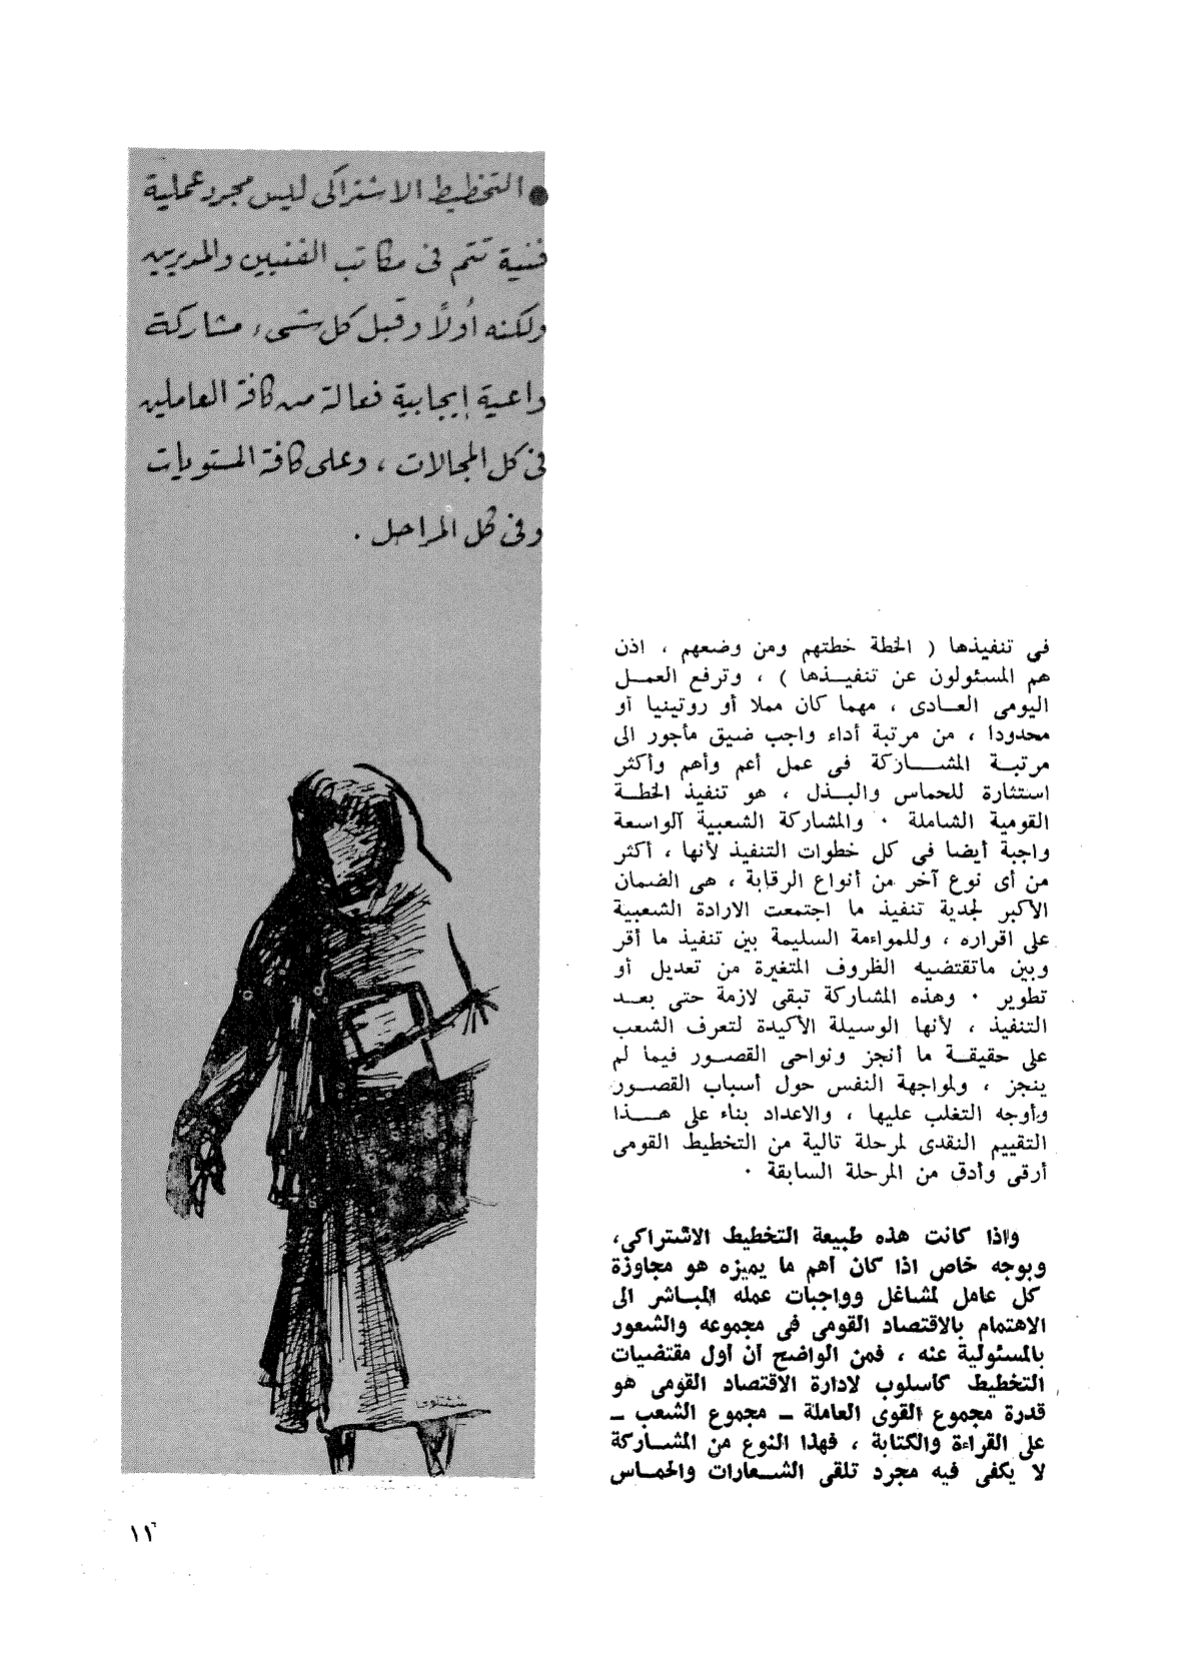 ● التخطيط الاشتراكى ليس مجرد عملية
فنية تتم فى مكاتب الفنيين والمديرين
ولكنه أولاً وقبل كل شىء، مشاركة
واعية إيجابية فعالة من كافة العاملين
فى كل المجالات ، وعلى كافة المستويات
وفى كل المراحل .
فى تنفيذها ( الخطة خطتهم ومن وضعهم ، اذن
هم المسئولون عن تنفيذها ) ، وترفع العمل
اليومى العادى ، مهما كان مملا أو روتينيا أو
محدودا ، من مرتبة أداء واجب ضيق مأجور الى
مرتبة المشاركة فى عمل أعم وأهم وأكثر
استثارة للحماس والبذل ، هو تنفيذ الخطة
القومية الشاملة . والمشاركة الشعبية الواسعة
واجبة أيضا فى كل خطوات التنفيذ لأنها ، أكثر
من أى نوع آخر من أنواع الرقابة ، هى الضمان
الأكبر لجدية تنفيذ ما اجتمعت الارادة الشعبية
على اقراره ، وللمواءمة السليمة بين تنفيذ ما أقر
وبين ماتقتضيه الظروف المتغيرة من تعديل أو
تطوير . وهذه المشاركة تبقى لازمة حتى بعد
التنفيذ ، لأنها الوسيلة الأكيدة لتعرف الشعب
على حقيقة ما أنجز ونواحى القصور فيما لم
ينجز ، ولمواجهة النفس حول أسباب القصور
وأوجه التغلب عليها ، والاعداد بناء على هذا
التقييم النقدى لمرحلة تالية من التخطيط القومى
أرقى وأدق من المرحلة السابقة .
واذا كانت هذه طبيعة التخطيط الاشتراكى،
وبوجه خاص اذا كان أهم ما يميزه هو مجاوزة
كل عامل لمشاغل وواجبات عمله المباشر الى
الاهتمام بالاقتصاد القومى فى مجموعه والشعور
بالمسئولية عنه ، فمن الواضح أن أول مقتضيات
التخطيط كأسلوب لادارة الاقتصاد القومى هو
قدرة مجموع القوى العاملة ـ مجموع الشعب ـ
على القراءة والكتابة ، فهذا النوع من المشاركة
لا يكفى فيه مجرد تلقى الشعارات والحماس
١١